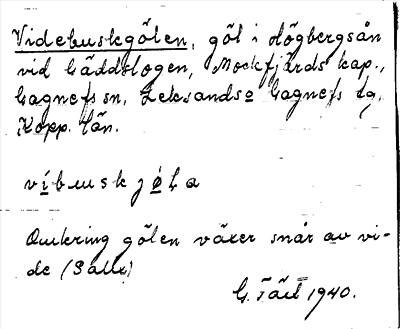 Videbuskgölen, göl i Högbergsån
vid Gäddslogen, Mockfjärds kap.,
Gagnefs sn, Leksands o Gagnefs tg,
Kopp. län.
víbuskjøla
Omkring gölen växer snår av vi-
de (Salix)
G. 1940.